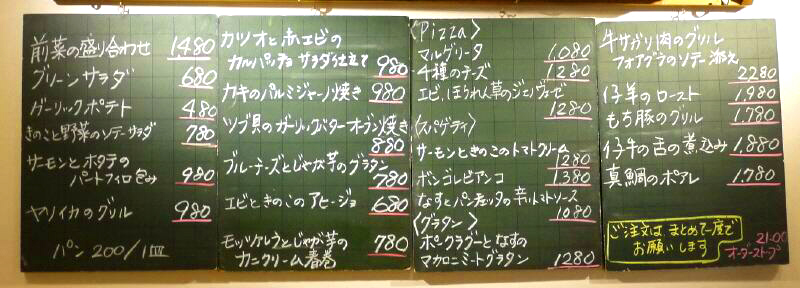 前菜の盛り合わせ 1480
グリーンサラダ 680
ガーリックポテト 480
きのこと野菜のソテーサラダ 780
サーモンとホタテの
パートフィロ包み 980
ヤリイカのグリル 980
パン 200/1皿
カツオと赤エビの
カルパッチョ サラダ仕立て 980
カキのパルミジャーノ焼き 980
ツブ貝のガーリックバターオーブン焼き
880
ブルーチーズとじゃが芋のグラタン
780
エビときのこのアヒージョ 680
モッツァレラとじゃが芋の
カニクリーム春巻 780
〈Pizza〉
マルゲリータ 1080
4種のチーズ 1280
エビ、ほうれん草のジェノヴェーゼ
1280
〈スパゲティ〉
サーモンときのこのトマトクリーム
1280
ボンゴレビアンコ 1380
なすとパンチェッタの辛いトマトソース
1080
〈グラタン〉
ポークラグーとなすの
マカロニミートグラタン 1280
牛サガリ肉のグリル
フォアグラのソテー添え
2280
仔羊のロースト 1,980
もち豚のグリル 1,780
仔牛の舌の煮込み 1,880
真鯛のポアレ 1,780
ご注文は まとめて一度で
お願いします
21:00
オーダーストップ